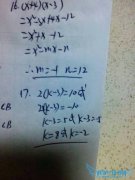 16. (x+4)(x-3)
= x²-3x+4x-12
= x²+x-12
= x²-mx-n
∴ m=-1 n=12
17. 2(k-3)=10或
2(k-3)=-10
k-3=5或k-3=-5
k=8或k=-2